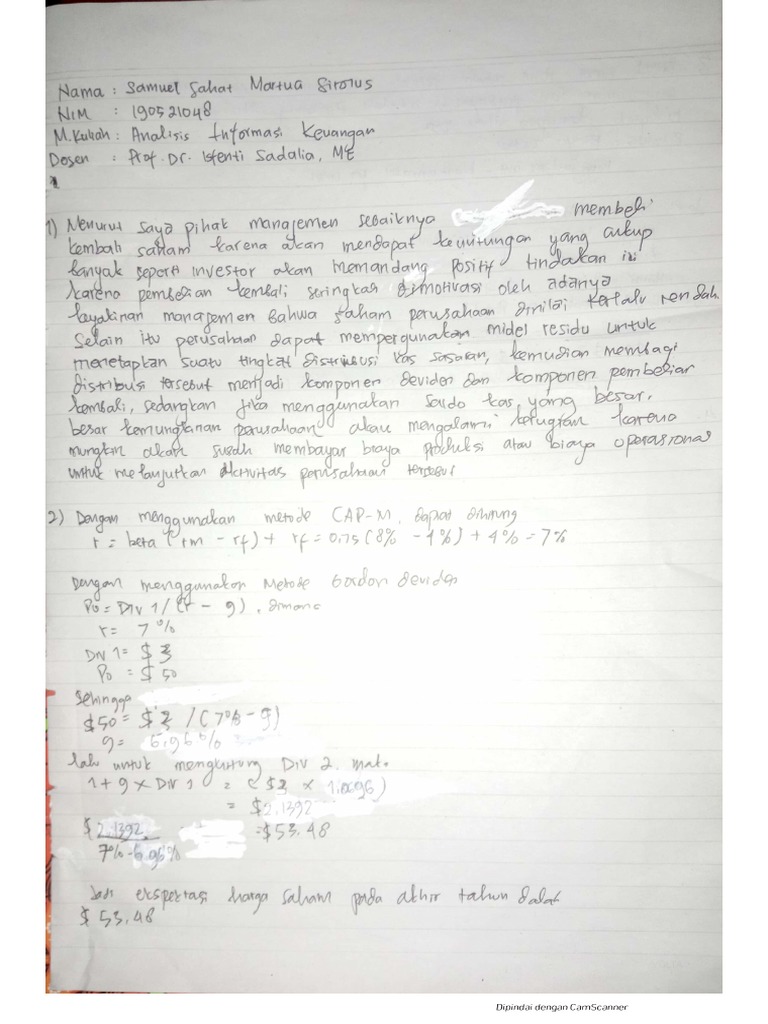 Nama : Samuel Sahat Martua Sirorus
NIM : 190521048
M. Kuliah : Analisis Informasi Keuangan
Dosen : Prof. Dr. Isfenti Sadalia, ME
1) Menurut saya pihak manajemen sebaiknya membeli
kembali saham karena akan mendapat keuntungan yang cukup
banyak seperti investor akan memandang positif tindakan ini
karena pembelian kembali seringkali dimotivasi oleh adanya
keyakinan manajemen bahwa saham perusahaan dinilai terlalu rendah.
Selain itu perusahaan dapat mempergunakan model residu untuk
menetapkan suatu tingkat distribusi kas sasaran, kemudian membagi
distribusi tersebut menjadi komponen deviden dan komponen pembelian
kembali, sedangkan jika menggunakan saldo kas yang besar,
besar kemungkinan perusahaan akan mengalami kerugian karena
mungkin akan susah membayar biaya produksi atau biaya operasional
untuk melanjutkan aktivitas perusahaan tersebut
2) Dengan menggunakan metode CAP-M, dapat dihitung
r = beta (rm - rf) + rf = 0,75 (8% - 4%) + 4% = 7%
Dengan menggunakan Metode Gordon deviden
P0 = DIV 1/(r - g), dimana
r = 7%
DIV 1 = $ 3
P0 = $ 50
Sehingga
$50 = $ 3 / (7% - g)
g =
lalu untuk menghitung DIV 2, maka
1 + g x DIV 1 = ( $2 x
= $2,1392
$ 2,1392 = $53.48
7% - 6,96%
Jadi ekspektasi harga saham pada akhir tahun dalah
$ 53.48
Dipindai dengan CamScanner